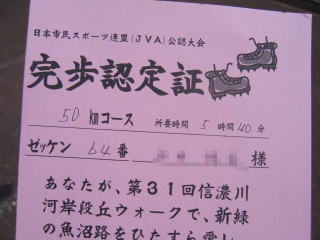 日本市民スポーツ連盟(JVA)公認大会
完歩認定証
50 kmコース 所要時間 5 時間 40 分
ゼッケン 64番 様
あなたが、第31回信濃川
河岸段丘ウォークで、新緑
の魚沼路をひたすら愛し